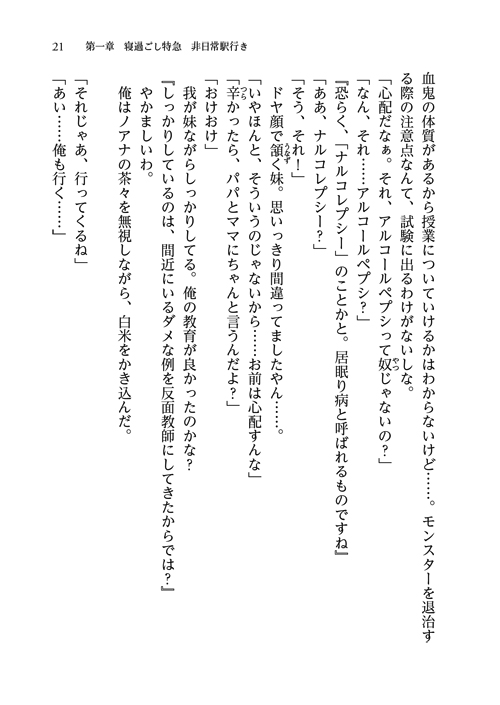 21　第一章　寝過ごし特急　非日常駅行き
血鬼の体質があるから授業についていけるかはわからないけど……。モンスターを退治す
る際の注意点なんて、試験に出るわけがないしな。
「心配だなぁ。それ、アルコールペプシって奴じゃないの？」
「なん、それ……アルコールペプシ？」
『恐らく、「ナルコレプシー」のことかと。居眠り病と呼ばれるものですね』
「ああ、ナルコレプシー？」
「そう、それ！」
ドヤ顔で頷く妹。思いっきり間違ってましたやん……。
「いやほんと、そういうのじゃないから……お前は心配すんな」
「辛かったら、パパとママにちゃんと言うんだよ？」
「おけおけ」
我が妹ながらしっかりしてる。俺の教育が良かったのかな？
『しっかりしているのは、間近にいるダメな例を反面教師にしてきたからでは？』
やかましいわ。
俺はノアナの茶々を無視しながら、白米をかき込んだ。
「それじゃあ、行ってくるね」
「あい……俺も行く……」